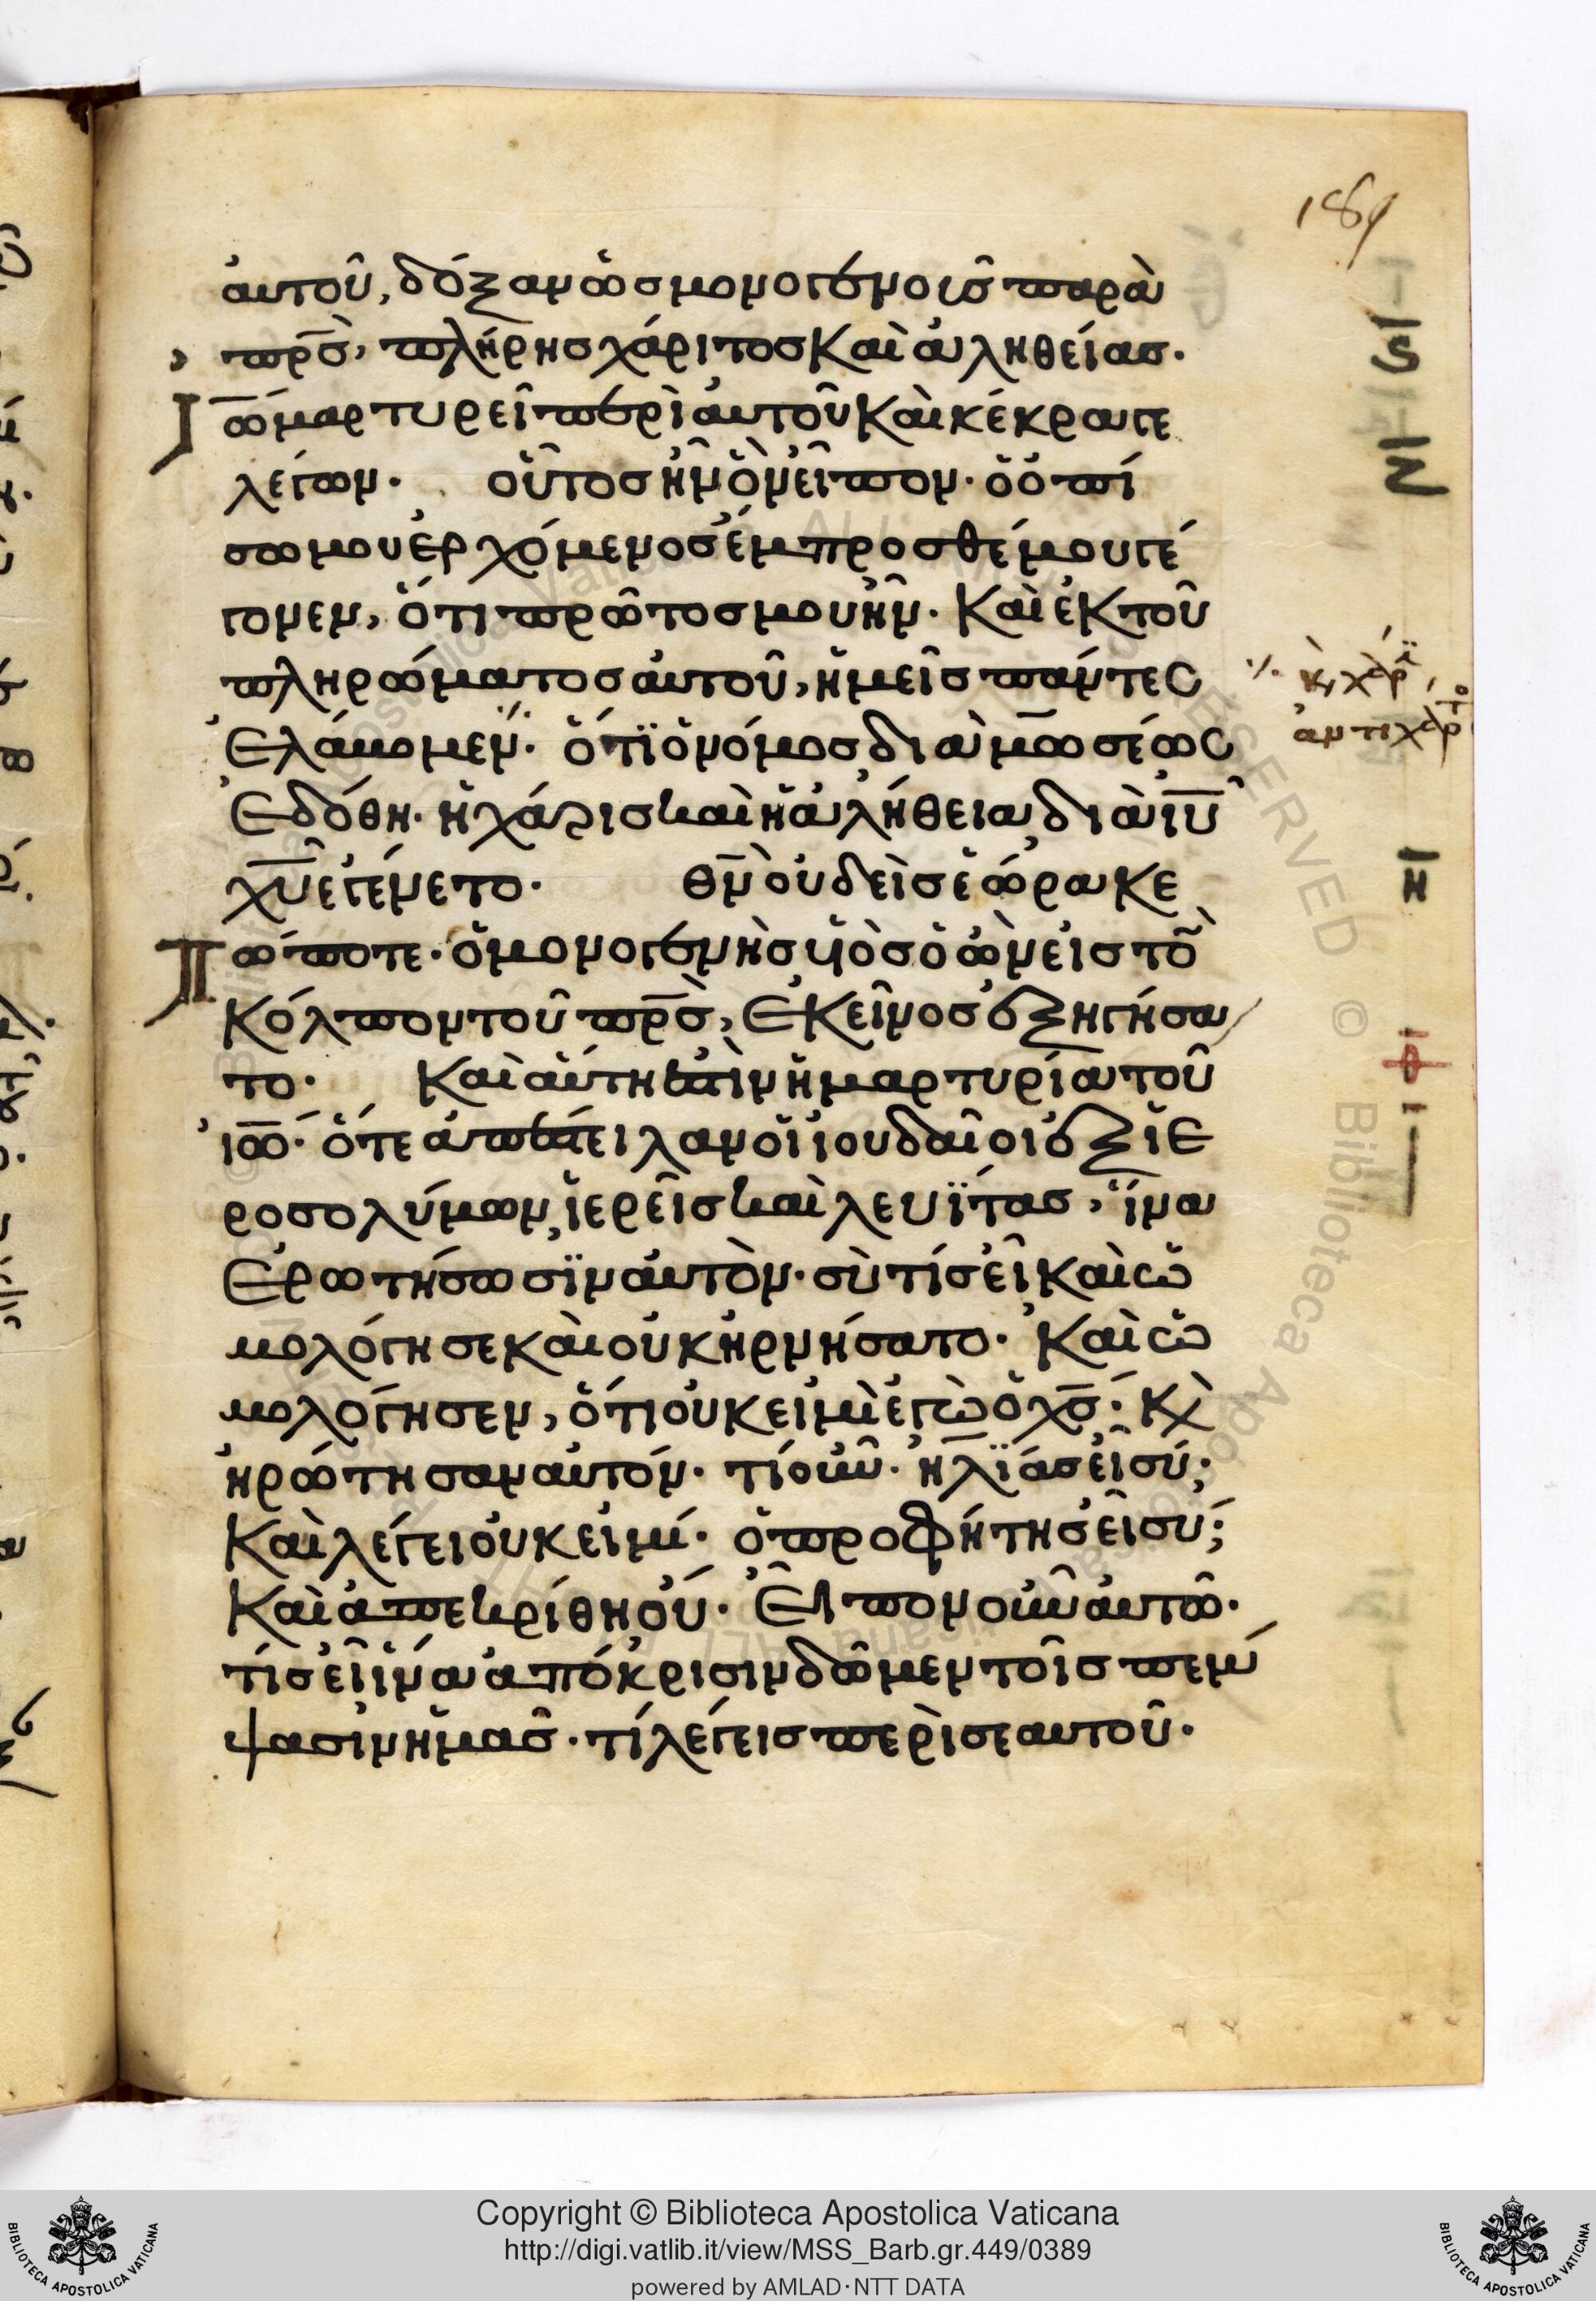 189
αὐτοῦ, δόξαν ὡσ μονογενοῦσ παρὰ
π̅ρ̅σ̅, πλήρησ χάριτοσ καὶ ἀληθείασ.
Ἰ̅ω̅ μαρτυρεῖ περὶ αὐτοῦ καὶ κέκραγε
λέγων. οὗτοσ ἦν ὃν εἶπον. ὁ ὀπί
σω μου ἐρχόμενοσ ἔμπροσθέν μου γέ
γονεν, ὅτι πρῶτοσ μου ἦν. καὶ ἐκ τοῦ
πληρώματοσ αὐτοῦ, ἡμεῖσ πάντεσ
ἐλάβομεν. ὅτι ὁ νόμοσ διὰ μωσέωσ
ἐδόθη. ἡ χάρισ καὶ ἡ ἀλήθεια διὰ ι̅υ̅
χ̅υ̅ ἐγένετο. θ̅ν̅ οὐδεὶσ ἑώρακε
πώποτε. ὁ μονογενὴσ υἱὸσ ὁ ὢν εἰσ τὸν
κόλπον τοῦ π̅ρ̅σ̅, ἐκεῖνοσ ἐξηγήσα
το. καὶ αὕτη ἐστὶν ἡ μαρτυρία τοῦ
ἰ̅ω̅. ὅτε ἀπέστειλαν οἱ ἰουδαῖοι ἐξ ἱε
ροσολύμων, ἱερεῖσ καὶ λευΐτασ, ἵνα
ἐρωτήσωσϊν αὐτὸν. σὺ τίσ εἶ καὶ ὡ
μολόγησε καὶ οὐκ ἠρνήσατο. καὶ ὡ
μολόγησεν, ὅτι οὐκ εἰμὶ ἐγὼ ὁ χ̅σ̅. κ̀
ἠρώτησαν αὐτόν. τί οὖν. ἠλϊάσ εἶ σύ;
καὶ λέγει οὐκ εἰμί. ὁ προφήτησ εἶ σύ;
καὶ ἀπεκρίθη οὔ. εἶπον οὖν αὐτῶ.
τίσ εἶ ἵνα ἀπόκρισιν δῶμεν τοῖσ πέμ
ψασιν ἡμᾶσ. τί λέγεισ περὶ σεαυτοῦ.
Copyright © Biblioteca Apostolica Vaticana
http://digi.vatlib.it/view/MSS_Barb.gr.449/0389
powered by AMLAD·NTT DATA
BIBLIOTECA APOSTOLICA VATICANA
BIBLIOTECA APOSTOLICA VATICANA